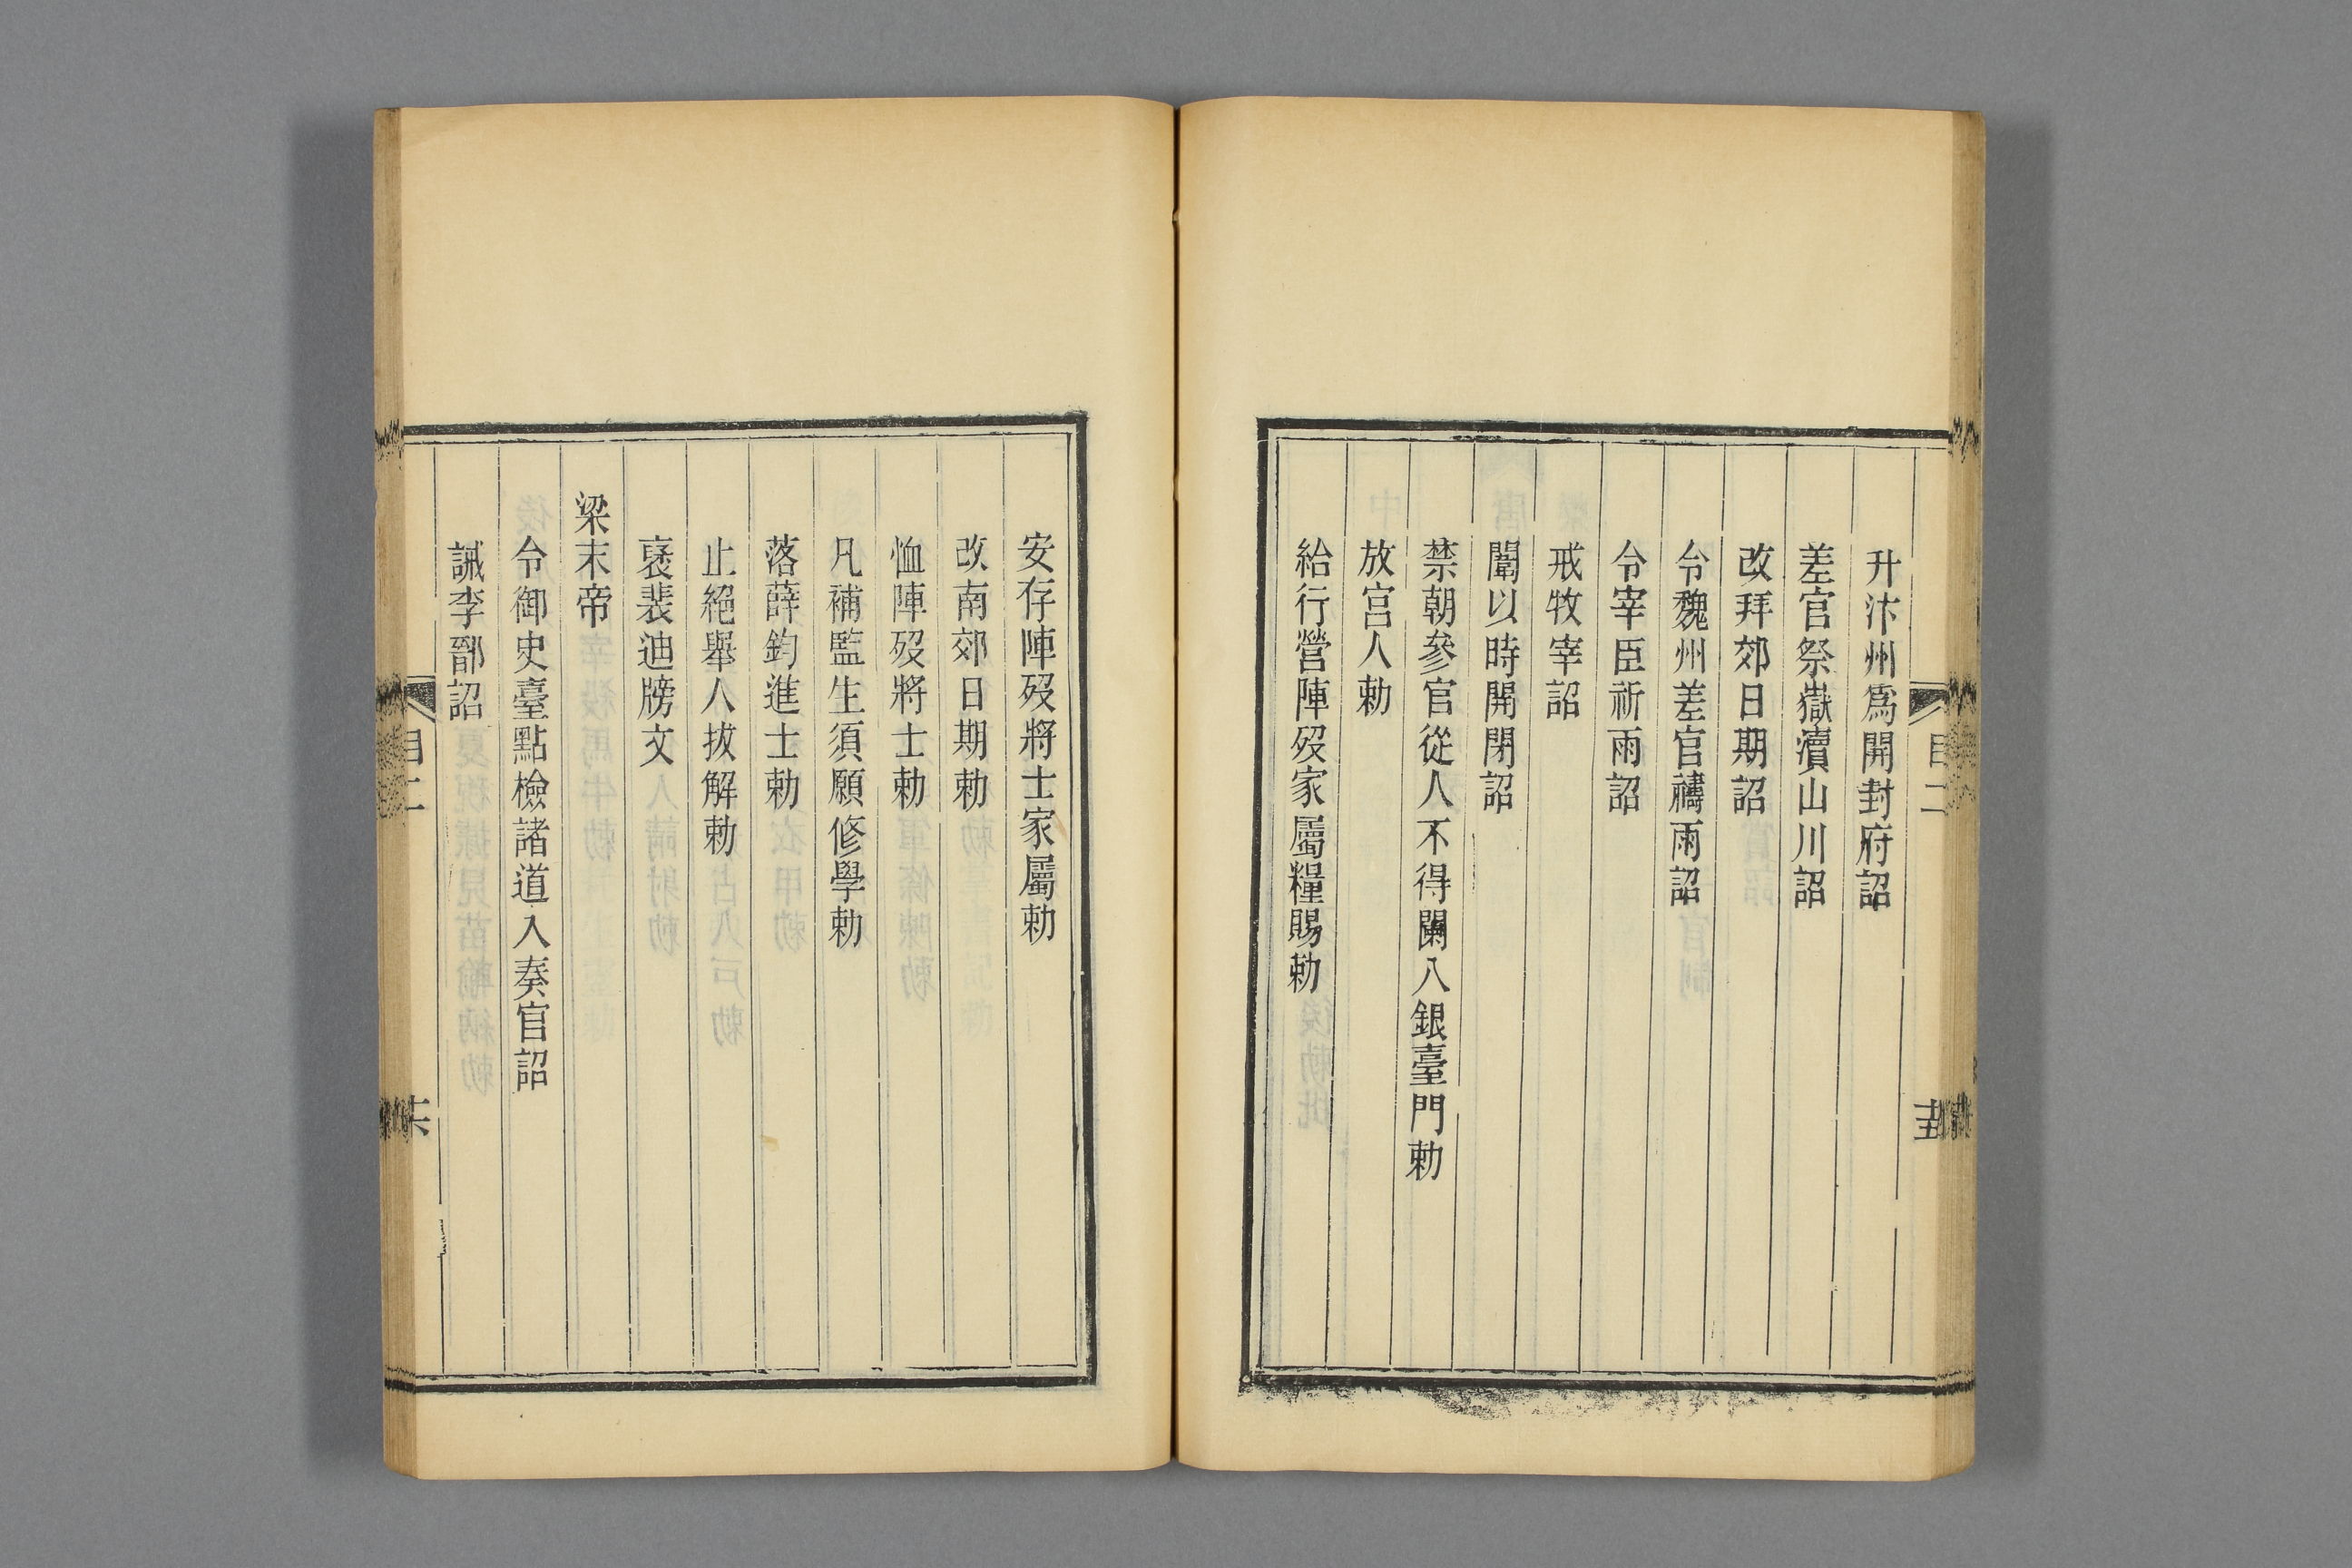 升汴州爲開封府詔
差官祭嶽瀆山川詔
改拜郊日期詔
令魏州差官禱雨詔
令宰臣祈雨詔
戒牧宰詔
闈以時開閉詔
禁朝參官從人不得闌入銀臺門勅
放宮人勅
給行營陣歿家屬糧賜勅
目二
安存陣歿將士家屬勅
改南郊日期勅
恤陣歿將士勅
凡補監生須願修學勅
落薛鈞進士勅
止絕舉人拔解勅
襃裴迪牓文
梁末帝
令御史臺點檢諸道入奏官詔
誡李鄑詔
目二